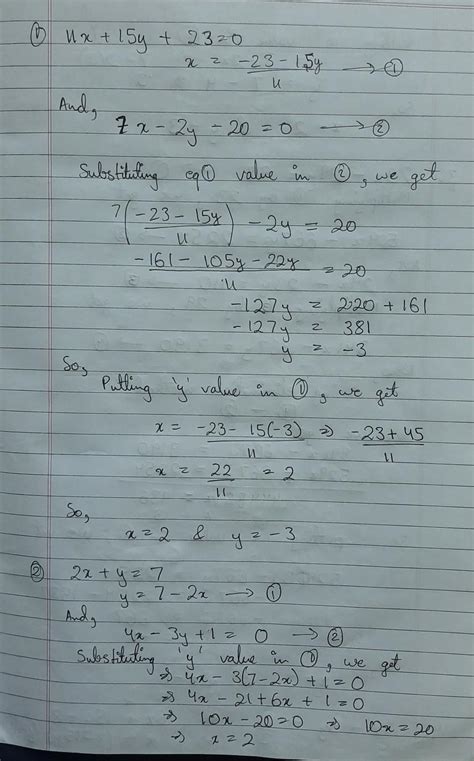 ① 11x + 15y + 23 = 0
x = (-23 - 15y)/11 → ①
And,
7x - 2y - 20 = 0 → ②
Substituting eq① value in ②, we get
7((-23 - 15y)/11) - 2y = 20
(-161 - 105y - 22y)/11 = 20
-127y = 220 + 161
-127y = 381
y = -3
So,
Putting 'y' value in ①, we get
x = (-23 - 15(-3))/11 ⇒ (-23 + 45)/11
x = 22/11 = 2
So,
x = 2 & y = -3
② 2x + y = 7
y = 7 - 2x → ①
And,
4x - 3y + 1 = 0 → ②
Substituting 'y' value in ①, we get
⇒ 4x - 3(7 - 2x) + 1 = 0
⇒ 4x - 21 + 6x + 1 = 0
⇒ 10x - 20 = 0 ⇒ 10x = 20
⇒ x = 2